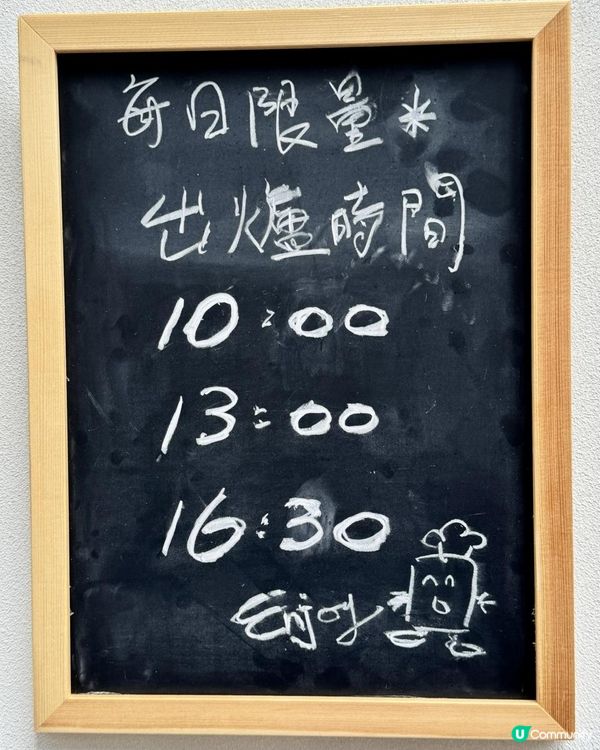 每日限量*
出爐時間
10:00
13:00
16:30
Enjoy
U Community